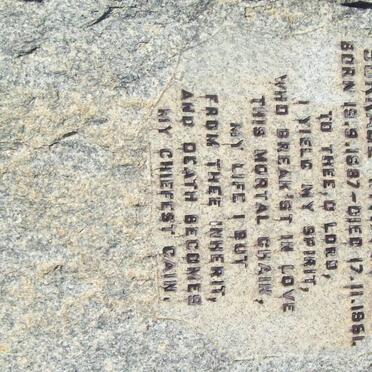 BORN 19.9.1887 — DIED 17.11.1961.
TO THEE, O LORD,
I YIELD MY SPIRIT,
WHO BREAKST IN LOVE
THIS MORTAL CHAIN,
MY LIFE I BUT
FROM THEE INHERIT,
AND DEATH BECOMES
MY CHIEFEST GAIN.